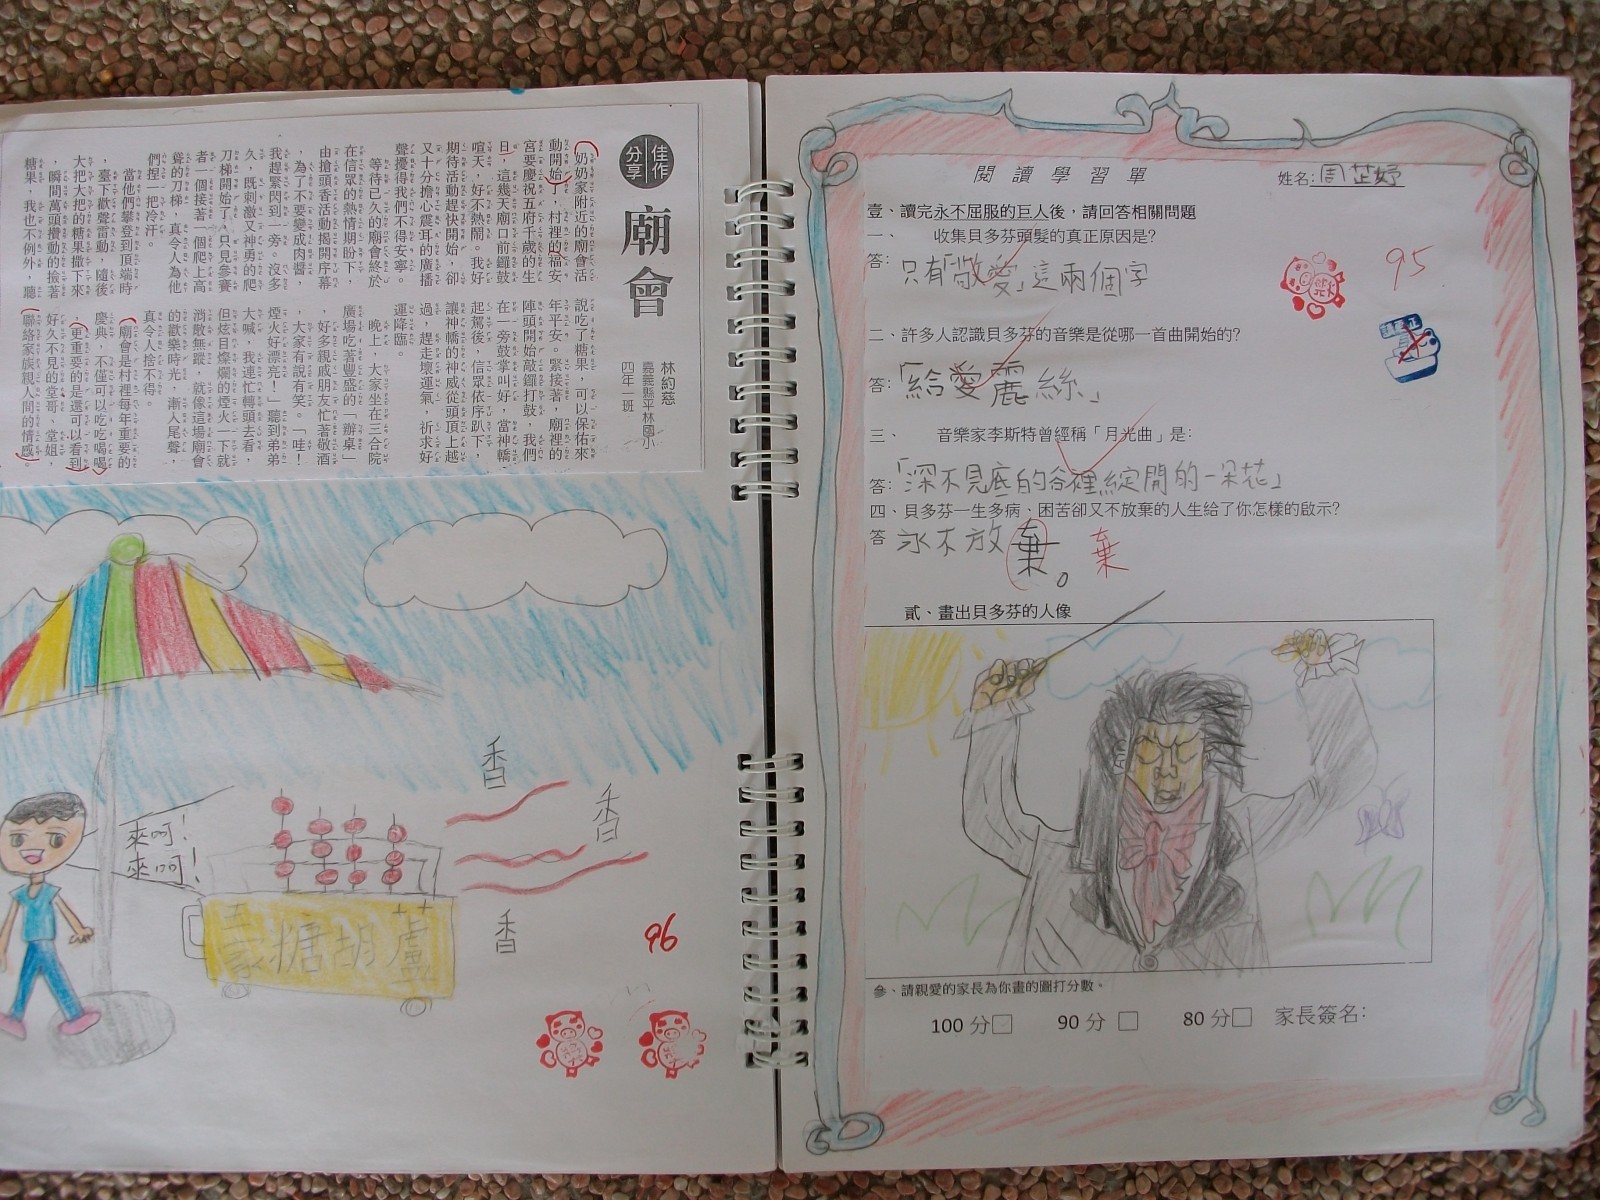 佳作
分享
廟會
林約慈
嘉義縣平林國小
四年一班
奶奶家附近的廟會活
動開始了，村裡的福安
宮要慶祝五府千歲的生
日，這幾天廟口前鑼鼓
喧天，好不熱鬧。我好
期待活動趕快開始，卻
又十分擔心震耳的廣播
聲擾得我們不得安寧。
等待已久的廟會終於
在信眾的熱情期盼下，
由搶頭香活動揭開序幕
，為了不要變成肉醬，
我趕緊閃到一旁。沒多
久，既刺激又神勇的爬
刀梯開始了，只見參賽
者一個接著一個爬上高
聳的刀梯，真令人為他
們捏一把冷汗。
當他們攀登到頂端時
，臺下歡聲雷動，隨後
大把大把的糖果撒下來
，瞬間萬頭攢動的撿著
糖果，我也不例外，聽
說吃了糖果，可以保佑來
年平安。緊接著，廟裡的
陣頭開始敲鑼打鼓，我們
在一旁鼓掌叫好，當神轎
起駕後，信眾依序趴下，
讓神轎的神威從頭頂上越
過，趕走壞運氣，祈求好
運降臨。
晚上，大家坐在三合院
廣場吃著豐盛的「辦桌」
，好多親戚朋友忙著敬酒
，大家有說有笑。「哇！
煙火好漂亮！」聽到弟弟
大喊，我連忙轉頭去看，
但炫目燦爛的煙火一下就
消散無蹤，就像這場廟會
的歡樂時光，漸入尾聲，
真令人捨不得。
廟會是村裡每年重要的
慶典，不僅可以吃吃喝喝
，更重要的是還可以看到
好久不見的堂哥、堂姐，
聯絡家族親人間的情感。
來呵！
來呵！
香
香
香
家糖胡蘆
96
閱讀學習單
姓名:周芷妤
壹、讀完永不屈服的巨人後，請回答相關問題
一、 收集貝多芬頭髮的真正原因是?
答:只有「敬愛」這兩個字
95
二、許多人認識貝多芬的音樂是從哪一首曲開始的?
答:「給愛麗絲」
三、 音樂家李斯特曾經稱「月光曲」是:
答:「深不見底的谷裡綻開的一朵花」
四、貝多芬一生多病、困苦卻又不放棄的人生給了你怎樣的啟示?
答 永不放棄。 棄
貳、畫出貝多芬的人像
參、請親愛的家長為你畫的圖打分數。
100 分□ 90 分 □ 80 分□ 家長簽名: